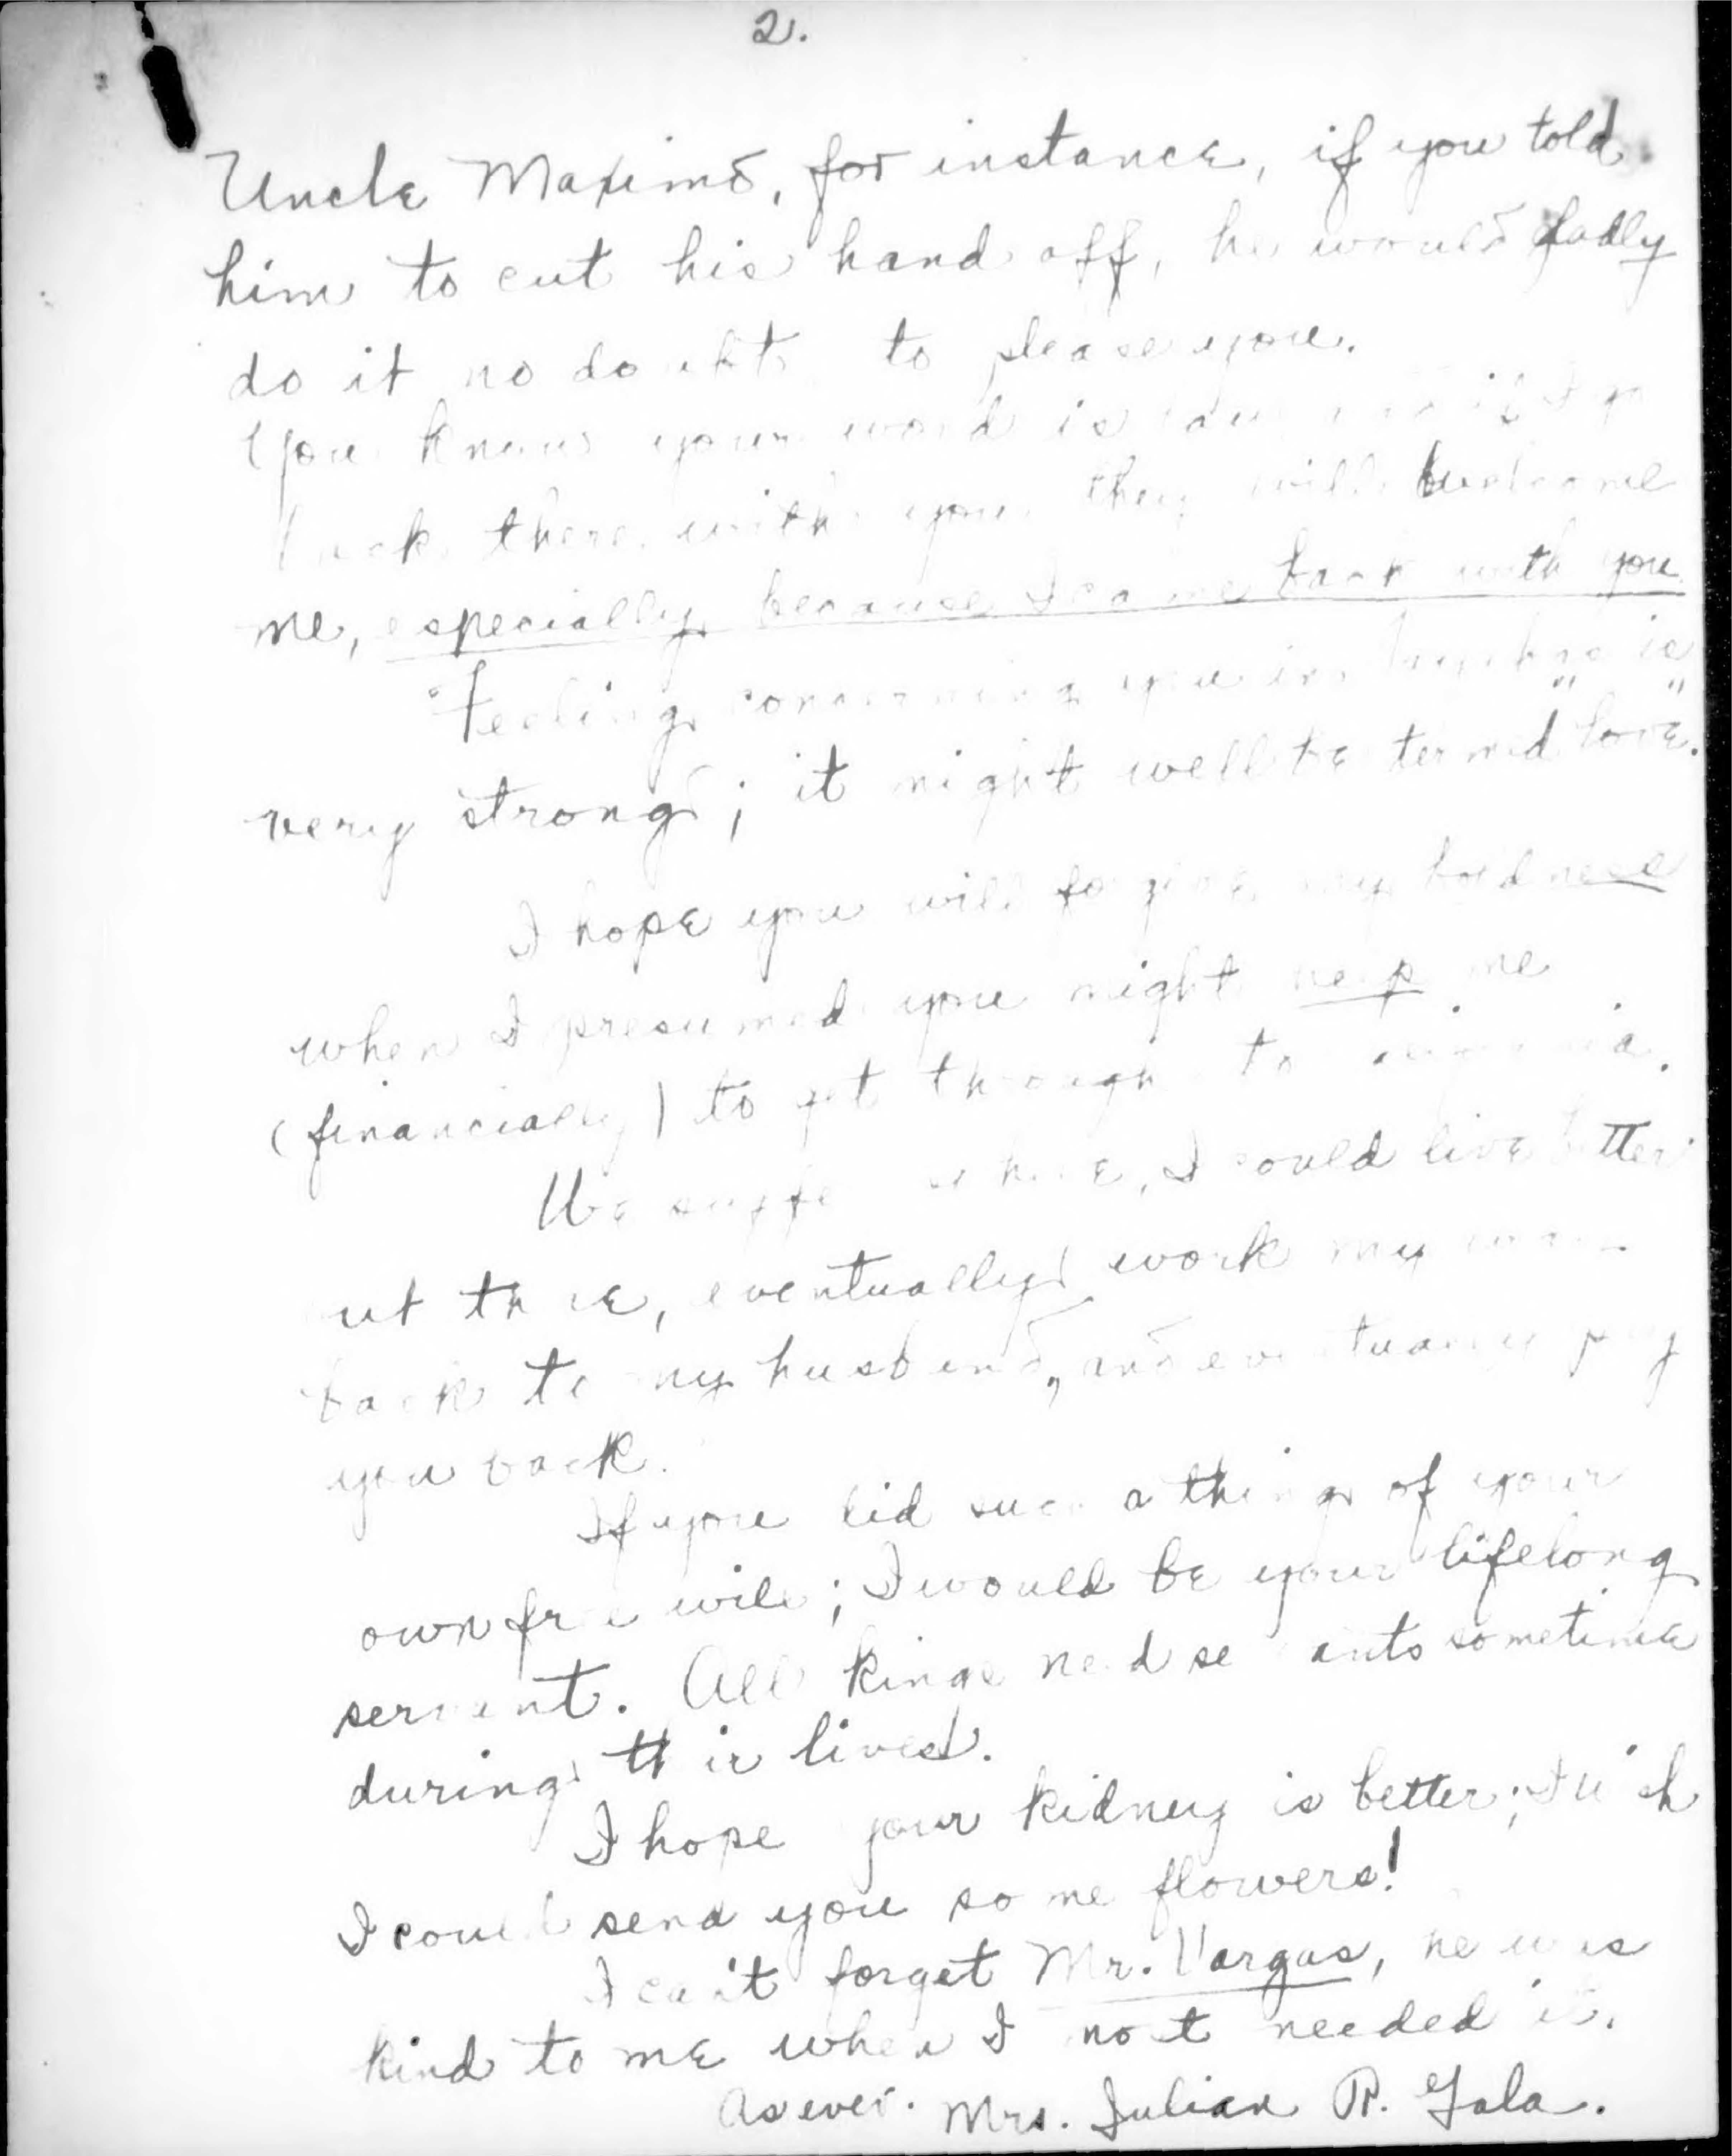 2.
Uncle Maximo, for instance, if you told
him to cut his hand off, he would gladly
do it no doubt, to please you.
You know your word is law, and if I go
back there with you they will welcome
me, especially because I came back with you
Feeling concerning you in is
very strong; it might well be termed "love".
I hope you will forgive my boldness
when I presumed you might help me
(financially) to get through to
We suffer here, I could live better
out there, eventually work my way
back to my husband, and eventually pay
you back.
If you did such a thing of your
own free will; I would be your lifelong
servant. All kings need servants sometime
during their lives.
I hope your kidney is better; I wish
I could send you some flowers!
I can't forget Mr. Vargas, he was
kind to me when I most needed it.
As ever. Mrs. Julian R. Gala.